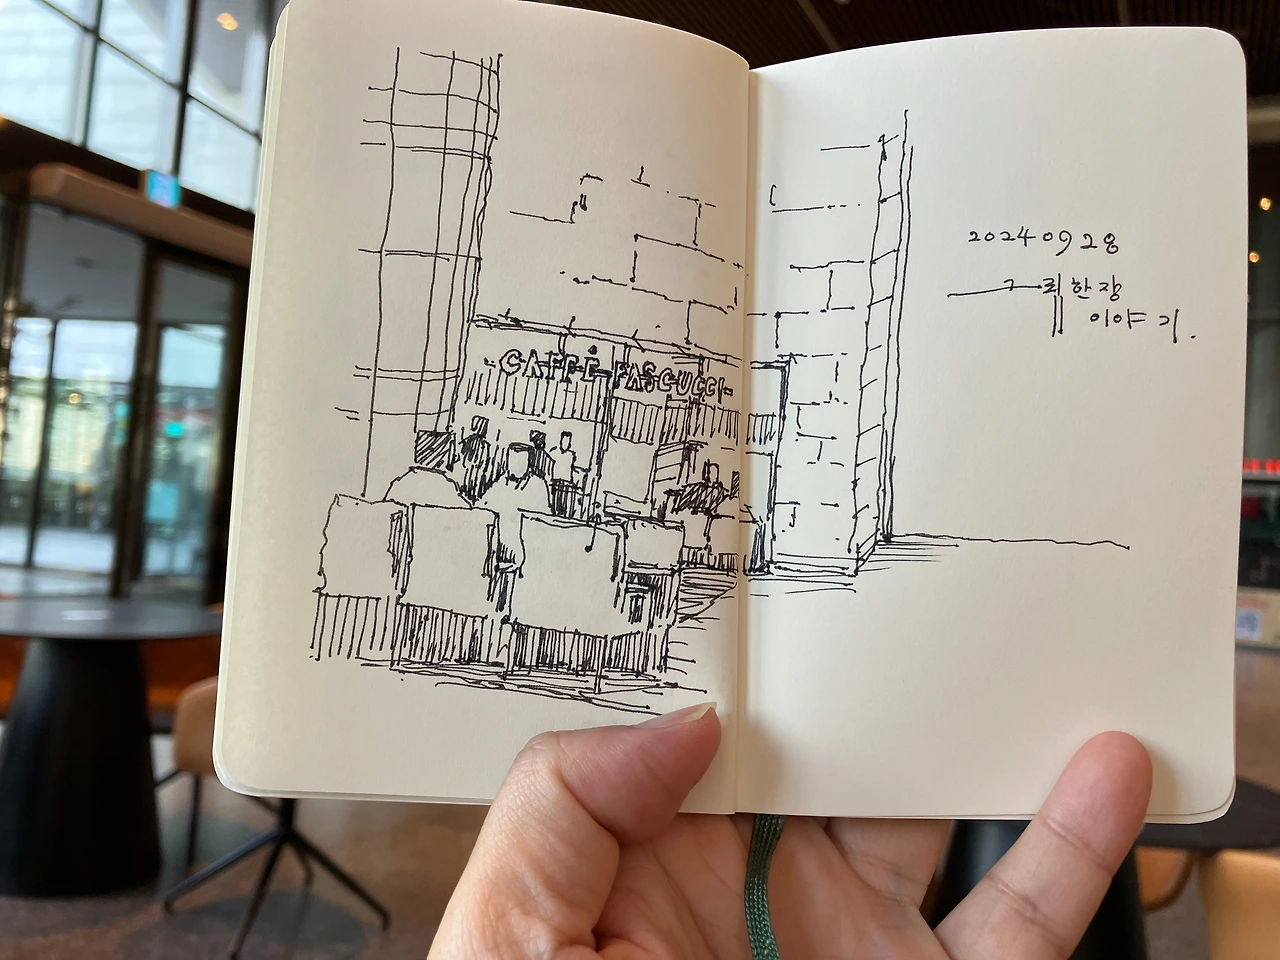 CAFFÈ PASCUCCI
2024 09 28
그림한장
이야기.